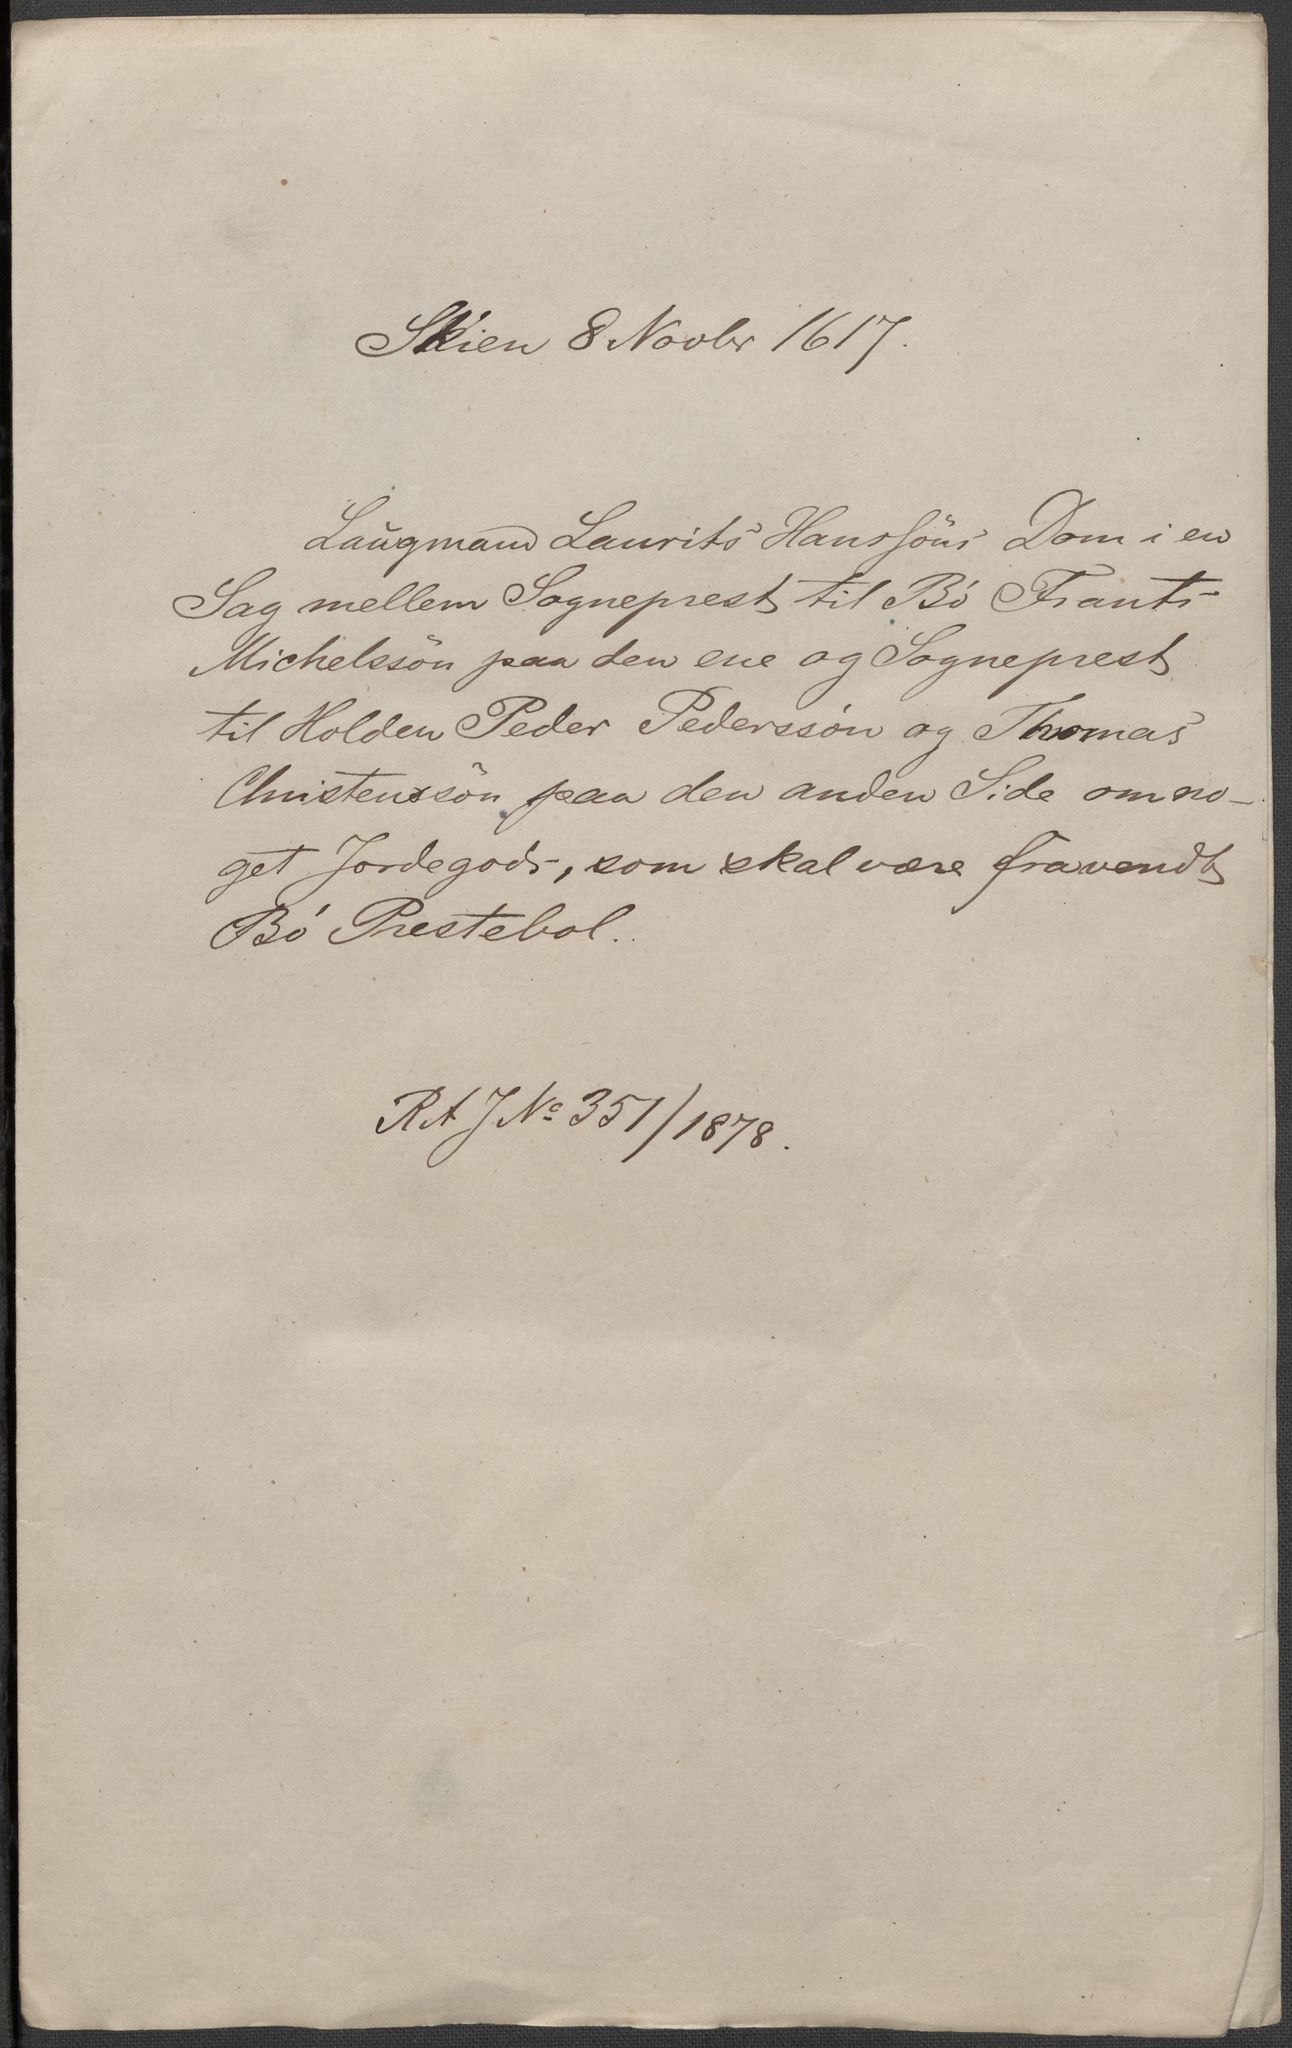 Skien 8 Novbr 1617.
Laugmand Laurits Hanssöns Dom i en
Sag mellem Sogneprest til Bö Frants
Michelssön paa den ene og Sogneprest
til Holden Peder Pederssön og Thomas
Christenssön paa den anden Side om no-
get Jordegods, som skal være fravendt
Bö Prestebol.
R A J No 351/1878.